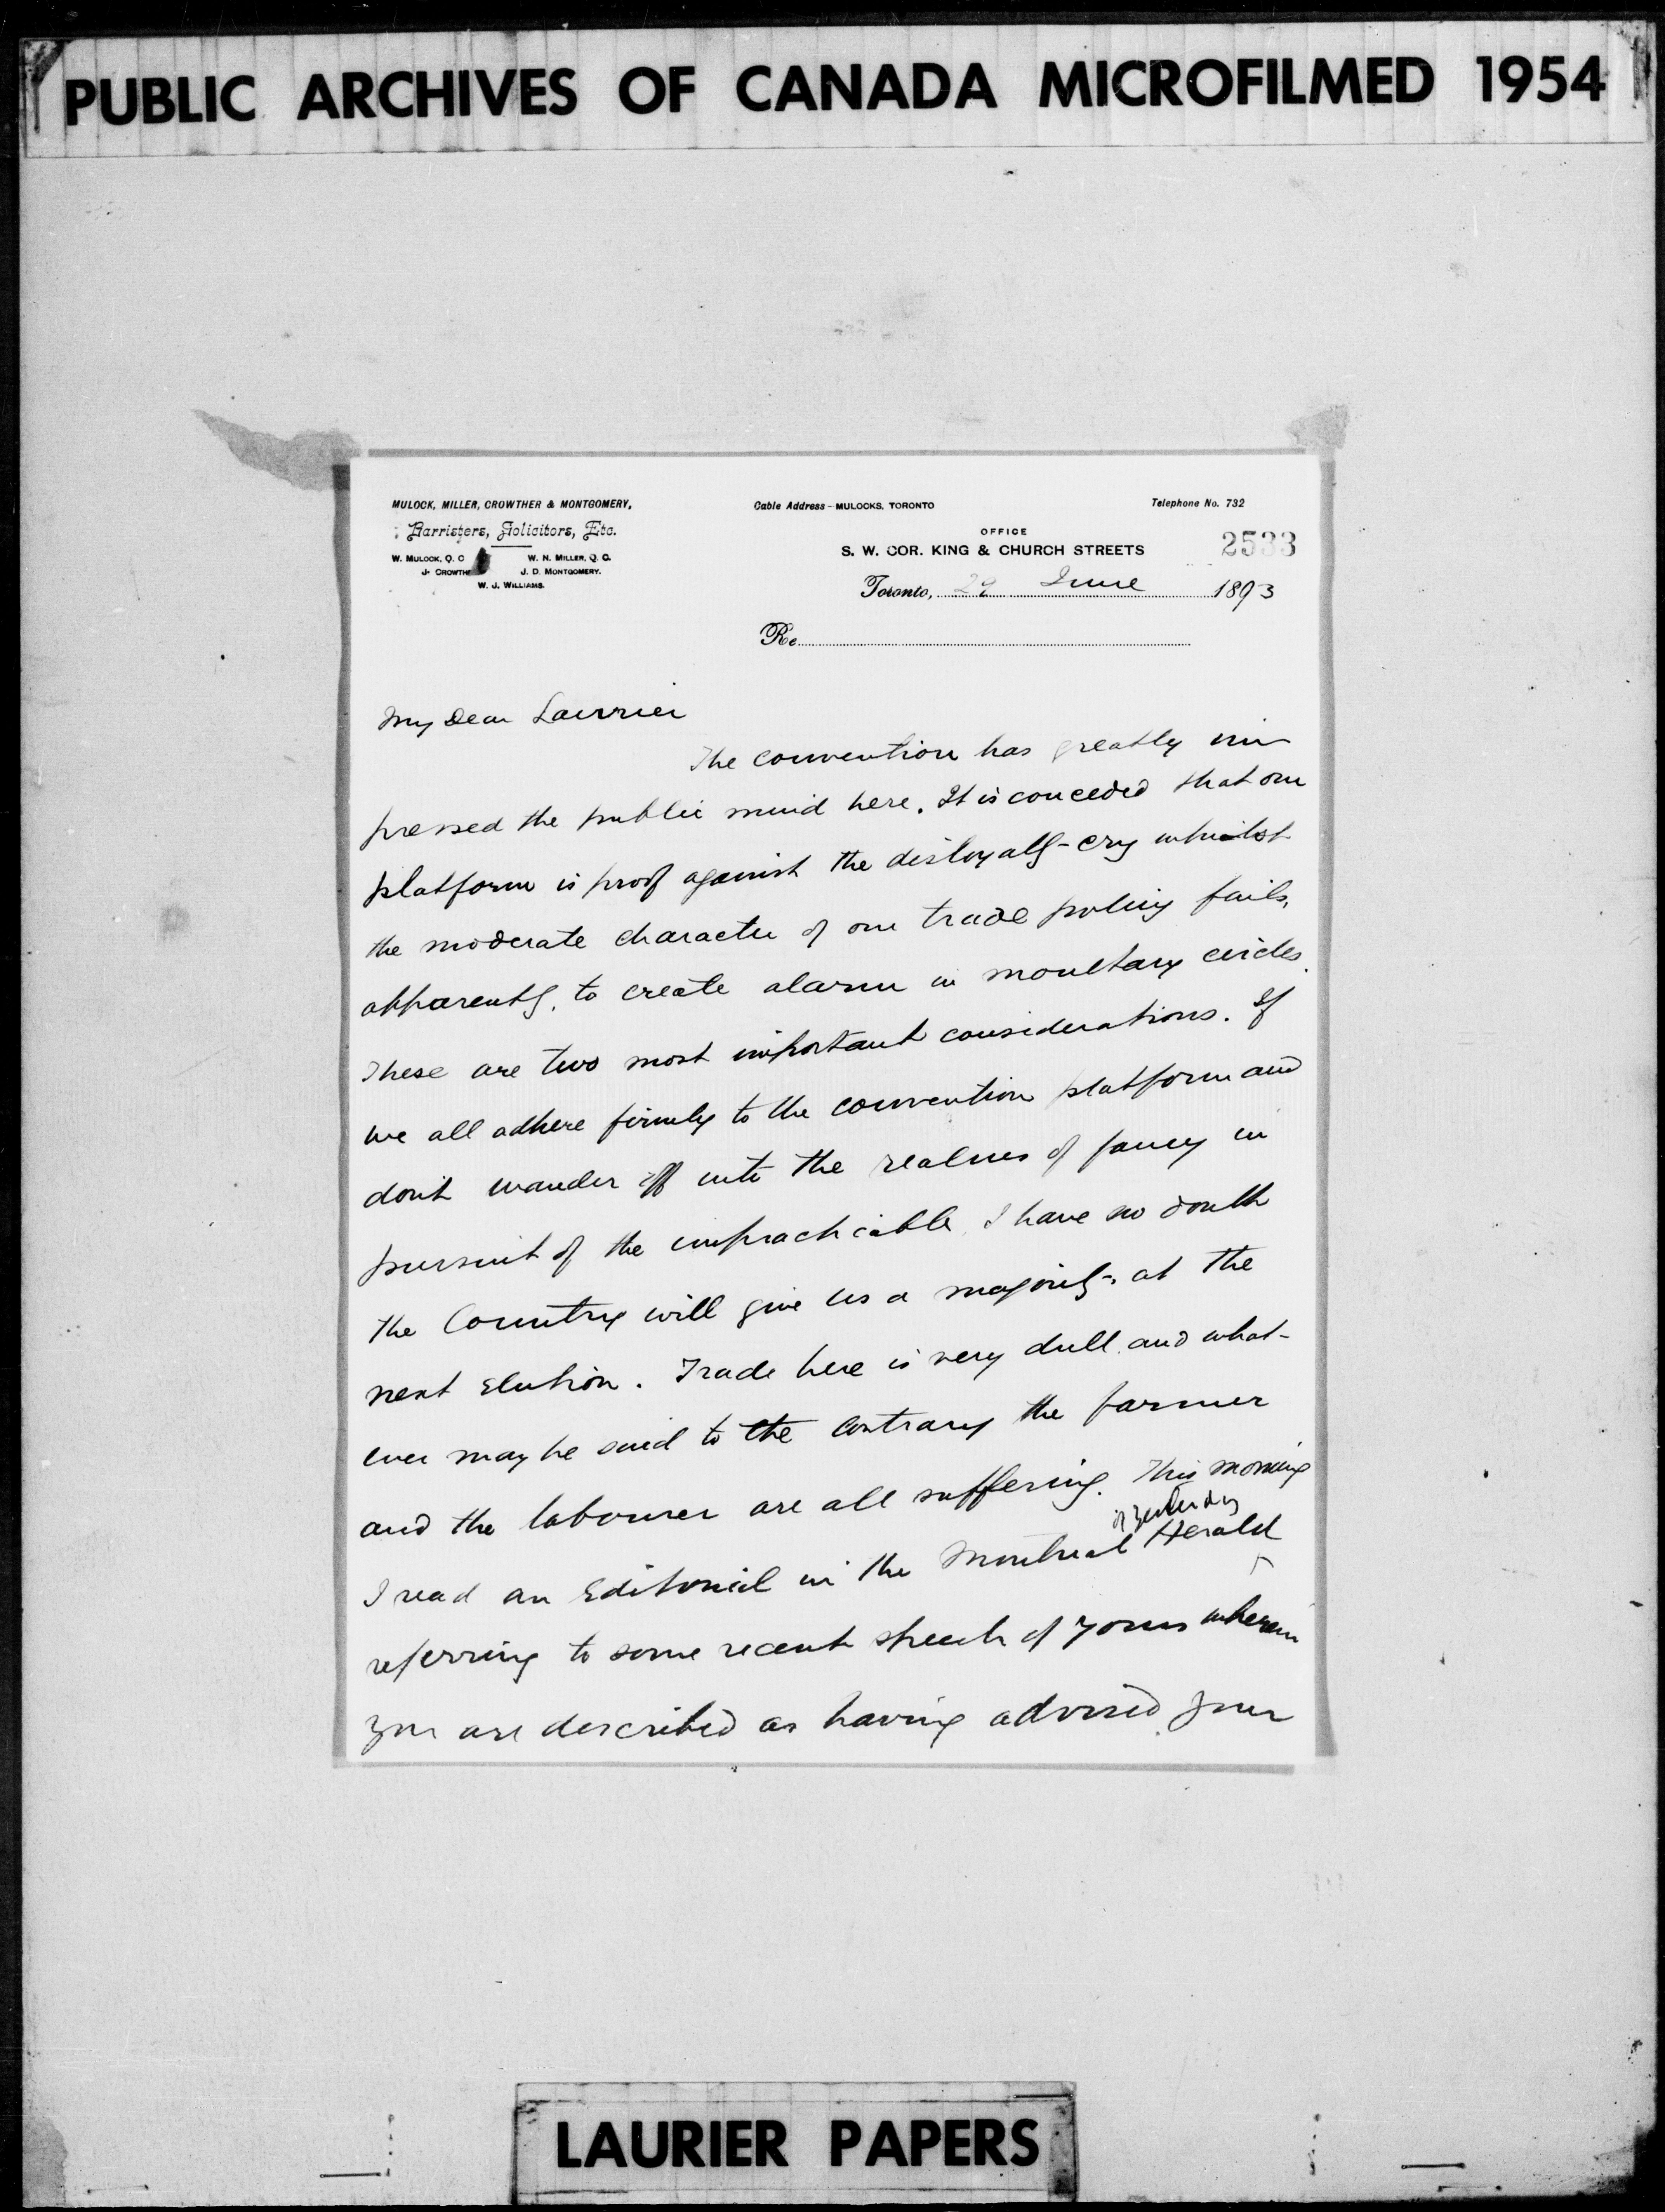 PUBLIC ARCHIVES OF CANADA MICROFILMED 1954
MULOCK, MILLER, CROWTHER & MONTGOMERY,
Barristers, Solicitors, Etc.
W. MULOCK, Q. C W. N. MILLER, Q. C.
J. CROWTHE J. D. MONTGOMERY.
W. J. WILLIAMS.
Cable Address - MULOCKS, TORONTO
Telephone No. 732
OFFICE
S. W. COR. KING & CHURCH STREETS
2533
Toronto, June 1893
Re
My Dear Laurrier
The convention has greatly im
pressed the public mind here. It is conceded that our
platform is proof against the disloyalty-cry whilst
the moderate character of our trade policy fails,
apparently, to create alarm in monetary circles.
These are two most important considerations. If
we all adhere firmly to the convention platform and
don't wander off into the realms of fancy in
pursuit of the impracticable I have no doubt
the Country will give us a majority at the
next Election. Trade here is very dull and what-
ever may be said to the contrary the farmer
and the labourer are all suffering. This morning
of yesterday
I read an Editorial in the Montreal Herald
referring to some recent speech of yours wherein
you are described as having advised your
LAURIER PAPERS